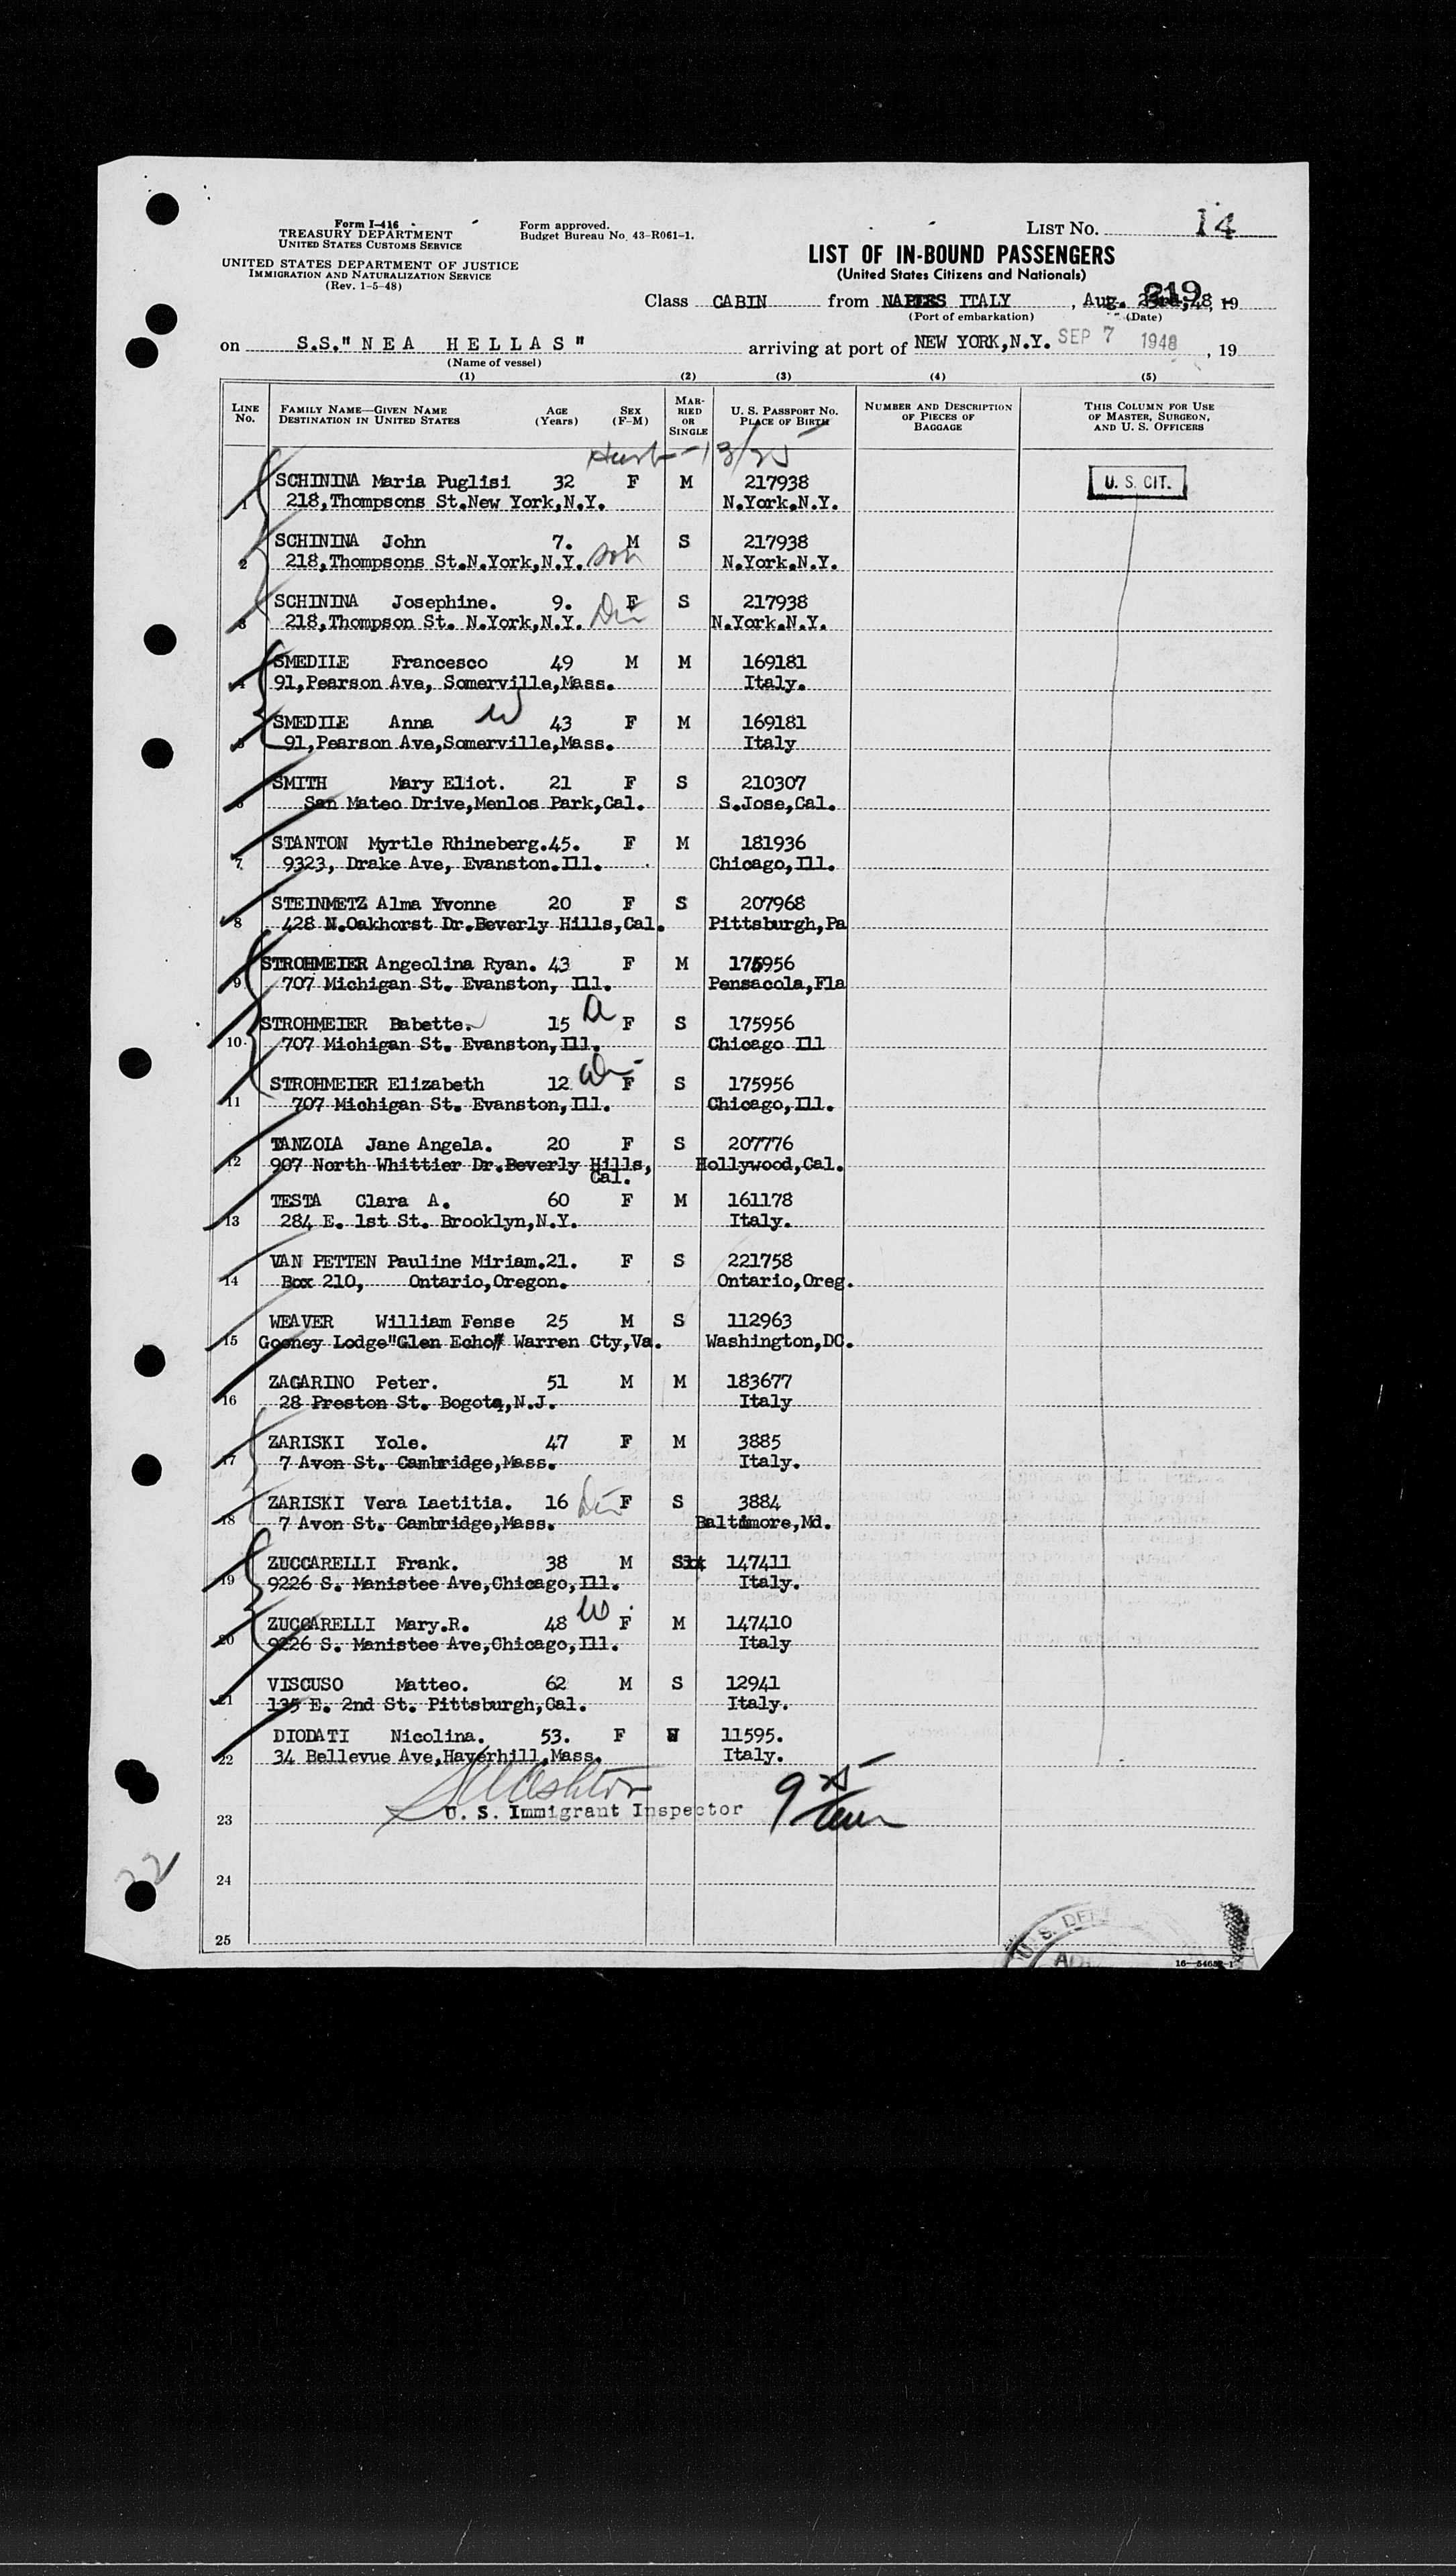 Form I-416
TREASURY DEPARTMENT
UNITED STATES CUSTOMS SERVICE
UNITED STATES DEPARTMENT OF JUSTICE
IMMIGRATION AND NATURALIZATION SERVICE
(Rev. 1-5-48)
Form approved.
Budget Bureau No. 43-R061-1.
LIST NO. 14
LIST OF IN-BOUND PASSENGERS
(United States Citizens and Nationals)
219
Class CABIN from NAPLES ITALY, Aug. 23rd, 48, 19
(Port of embarkation) (Date)
on S.S." N E A H E L L A S " arriving at port of NEW YORK,N.Y. SEP 7 1948, 19
(Name of vessel)
(1) (2) (3) (4) (5)
LINE NO. FAMILY NAME—GIVEN NAME DESTINATION IN UNITED STATES AGE (Years) SEX (F-M) MARRIED OR SINGLE U. S. PASSPORT NO. PLACE OF BIRTH NUMBER AND DESCRIPTION OF PIECES OF BAGGAGE THIS COLUMN FOR USE OF MASTER, SURGEON, AND U. S. OFFICERS
SCHININA Maria Puglisi 32 F M 217938 U. S. CIT.
1 218,Thompsons St.New York,N.Y. N.York.N.Y.
SCHININA John 7. M S 217938
2 218,Thompsons St.N.York,N.Y. son N.York.N.Y.
SCHININA Josephine. 9. F S 217938
3 218,Thompson St. N.York,N.Y. N.York.N.Y.
SMEDILE Francesco 49 M M 169181
4 91,Pearson Ave, Somerville,Mass. Italy.
SMEDILE Anna W 43 F M 169181
5 91,Pearson Ave,Somerville,Mass. Italy
SMITH Mary Eliot. 21 F S 210307
6 San Mateo Drive,Menlos Park,Cal. S.Jose,Cal.
STANTON Myrtle Rhineberg.45. F M 181936
7 9323, Drake Ave, Evanston.Ill. Chicago,Ill.
STEINMETZ Alma Yvonne 20 F S 207968
8 428 N.Oakhorst Dr.Beverly Hills,Cal. Pittsburgh,Pa
STROHMEIER Angeolina Ryan. 43 F M 175956
9 707 Michigan St. Evanston, Ill. Pensacola,Fla
STROHMEIER Babette. 15 F S 175956
10 707 Michigan St. Evanston,Ill. Chicago Ill
STROHMEIER Elizabeth 12 F S 175956
11 707 Michigan St. Evanston,Ill. Chicago,Ill.
TANZOLA Jane Angela. 20 F S 207776
12 907 North Whittier Dr.Beverly Hills, Hollywood,Cal.
Cal.
TESTA Clara A. 60 F M 161178
13 284 E. 1st St. Brooklyn,N.Y. Italy.
VAN PETTEN Pauline Miriam.21. F S 221758
14 Box 210, Ontario,Oregon. Ontario,Oreg.
WEAVER William Fense 25 M S 112963
15 Gooney Lodge"Glen Echo" Warren Cty,Va. Washington,DC.
ZAGARINO Peter. 51 M M 183677
16 28 Preston St. Bogota,N.J. Italy
ZARISKI Yole. 47 F M 3885
17 7 Avon St. Cambridge,Mass. Italy.
ZARISKI Vera Laetitia. 16 F S 3884
18 7 Avon St. Cambridge,Mass. Baltimore,Md.
ZUCCARELLI Frank. 38 M 147411
19 9226 S. Manistee Ave,Chicago,Ill. Italy.
ZUCCARELLI Mary.R. 48 W F M 147410
20 9226 S. Manistee Ave,Chicago,Ill. Italy
VISCUSO Matteo. 62 M S 12941
21 135 E. 2nd St. Pittsburgh,Cal. Italy.
DIODATI Nicolina. 53. F W 11595.
22 34 Bellevue Ave,Haverhill,Mass. Italy.
U. S. Immigrant Inspector
23
22
24
25
U. S. DE
16—54652-1